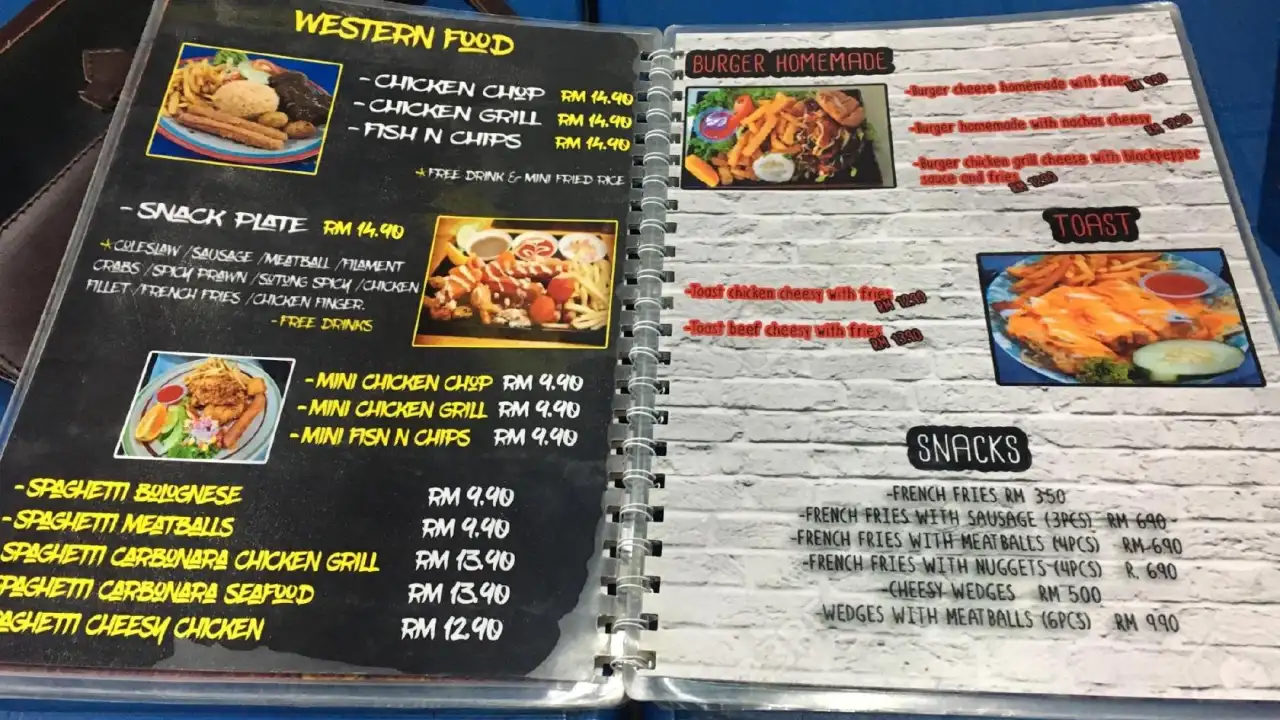 WESTERN FOOD
- CHICKEN CHOP RM 14.90
- CHICKEN GRILL RM 14.90
- FISH N CHIPS RM 14.90
*FREE DRINK & MINI FRIED RICE
- SNACK PLATE RM 14.90
*COLESLAW /SAUSAGE /MEATBALL /FILAMENT
CRABS /SPICY PRAWN /SOTONG SPICY /CHICKEN
FILLET /FRENCH FRIES /CHICKEN FINGER.
- FREE DRINKS
- MINI CHICKEN CHOP RM 9.90
- MINI CHICKEN GRILL RM 9.90
- MINI FISN N CHIPS RM 9.90
- SPAGHETTI BOLOGNESE RM 9.90
- SPAGHETTI MEATBALLS RM 9.90
SPAGHETTI CARBONARA CHICKEN GRILL RM 13.90
SPAGHETTI CARBONARA SEAFOOD RM 13.90
AGHETTI CHEESY CHICKEN RM 12.90
BURGER HOMEMADE
-Burger cheese homemade with fries
-Burger homemade with nachos cheesy
-Burger chicken grill cheese with blackpepper
sauce and fries
TOAST
-Toast chicken cheesy with fries RM
-Toast beef cheesy with fries RM
SNACKS
-FRENCH FRIES RM 350
-FRENCH FRIES WITH SAUSAGE (3PCS) RM 690
-FRENCH FRIES WITH MEATBALLS (4PCS) RM 690
-FRENCH FRIES WITH NUGGETS (4PCS) R. 690
-CHEESY WEDGES RM 500
WEDGES WITH MEATBALLS (6PCS) RM 990